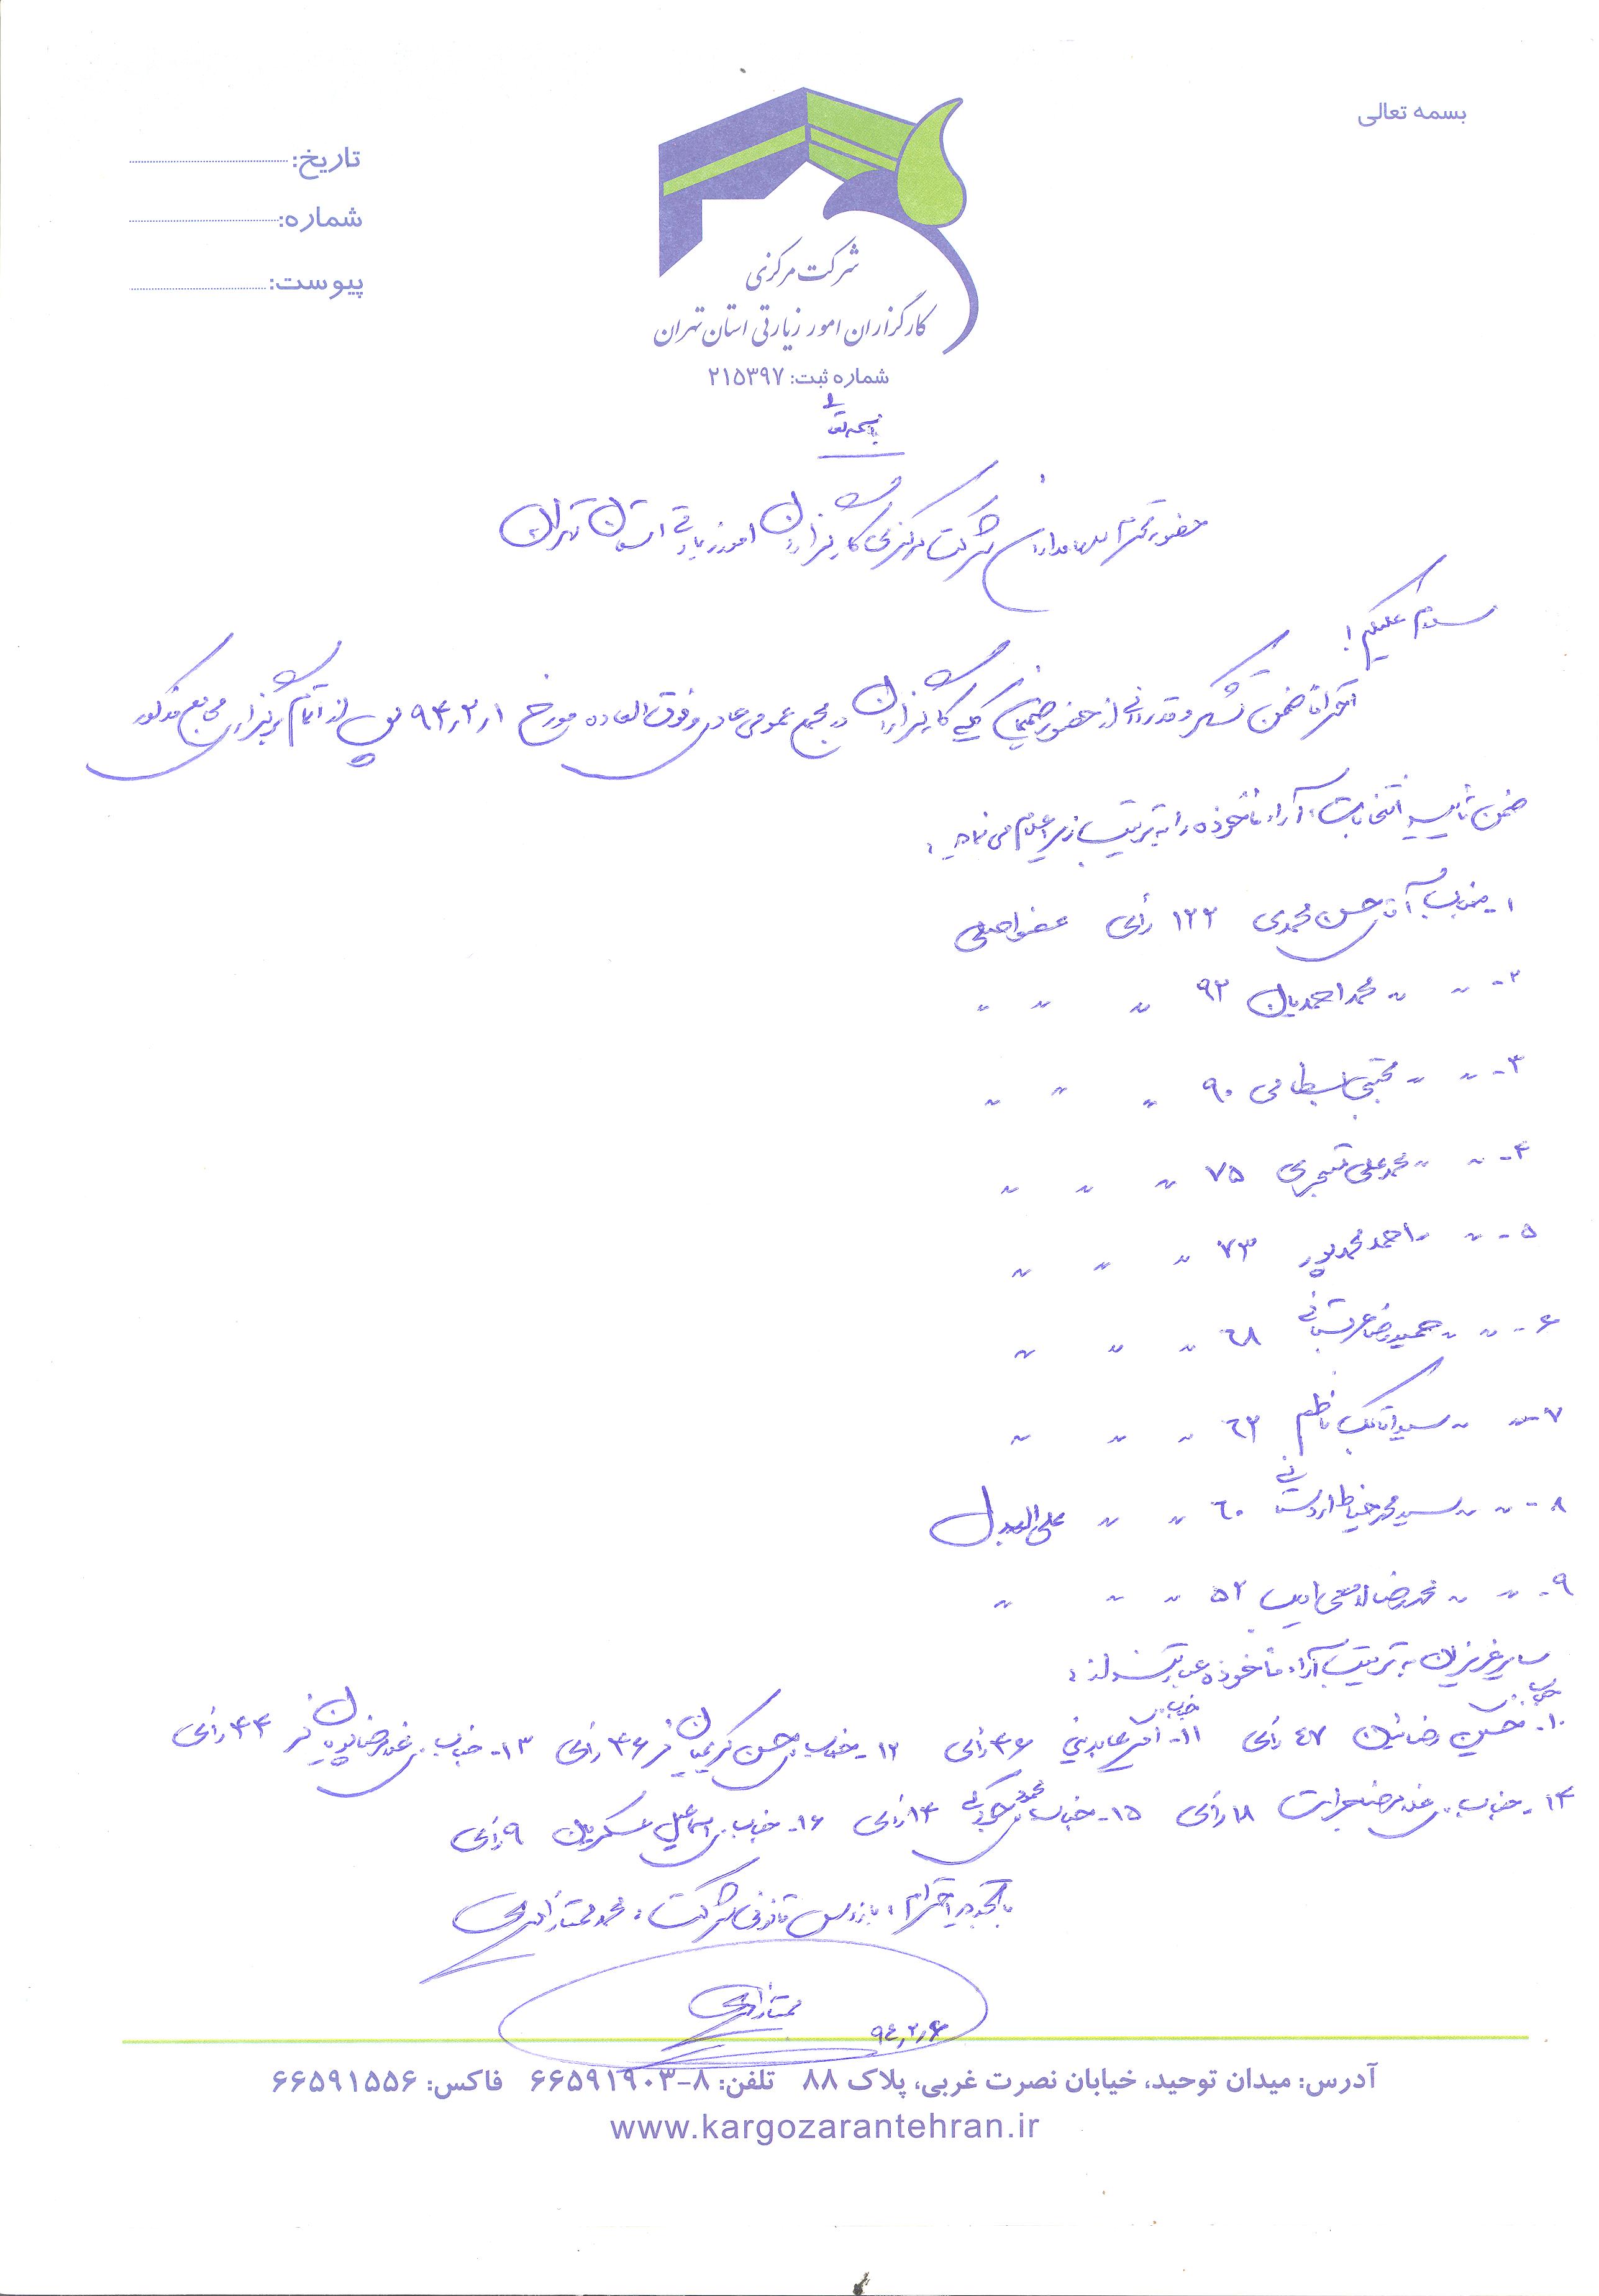 بسمه تعالی
تاریخ:
شماره:
پیوست:
شرکت مرکزی
کارگزاران امور زیارتی استان تهران
شماره ثبت: ۲۱۵۳۹۷
بسمه تعالی
حضور محترم سهامداران شرکت مرکزی کارگزاران امور زیارتی استان تهران
سلام علیکم!
احتراماً ضمن تشکر و قدردانی از حضور کارگزاران در مجمع عمومی عادی و فوق العاده مورخ ۹۴٫۲٫۱ پس از اتمام برگزاری مجامع مذکور
ضمن تأیید انتخابات، آراء مأخوذه را به ترتیب زیر اعلام می نماید:
۱- جناب آقای حسن محمدی ۱۲۲ رأی عضو اصلی
۲- 〃 〃 محمد احمدیان ۹۲ 〃 〃 〃
۳- 〃 〃 مجتبی بسطامی ۹۰ 〃 〃 〃
۴- 〃 〃 محمدعلی ۷۵ 〃 〃 〃
۵- 〃 〃 احمد محمدپور ۷۳ 〃 〃 〃
۶- 〃 〃 حمیدرضا ۶۸ 〃 〃 〃
۷- 〃 〃 سید اتابک ناظم ۶۳ 〃 〃 〃
۸- 〃 〃 سید محمد خیاط اردستانی ۶۰ 〃 〃 علی البدل
۹- 〃 〃 محمدرضا ۵۲ 〃 〃 〃
سایر عزیزان به ترتیب آراء مأخوذه عبارتند از:
۱۰- جناب حسین رضائیان ۴۷ رأی ۱۱- جناب امیر عابدینی ۴۶ رأی ۱۲- جناب حسن کریمیان فر ۴۶ رأی ۱۳- جناب فر ۴۴ رأی
۱۴- جناب ۱۸ رأی ۱۵- جناب محمد ۱۴ رأی ۱۶- جناب اسماعیل عسکریان ۹ رأی
با تجدید احترام، بازرس قانونی شرکت، محمد ممتاز اکبری
ممتاز اکبری
۹۴٫۲٫۶
آدرس: میدان توحید، خیابان نصرت غربی، پلاک ۸۸ تلفن: ۸-۶۶۵۹۱۹۰۳ فاکس: ۶۶۵۹۱۵۵۶
www.kargozarantehran.ir